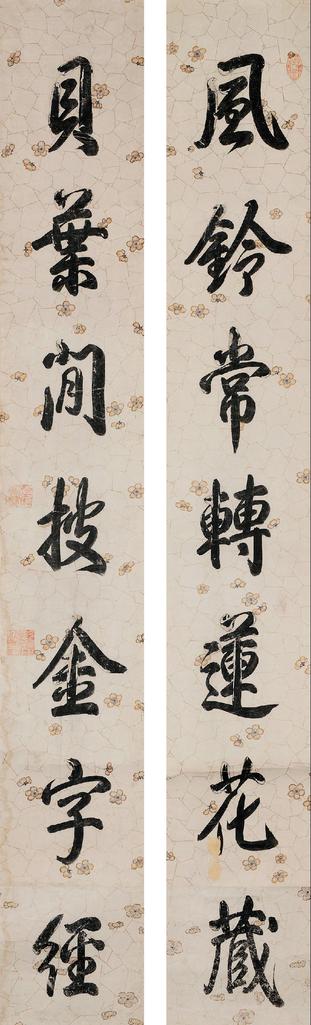 風鈴常轉蓮花藏
貝葉閒披金字經